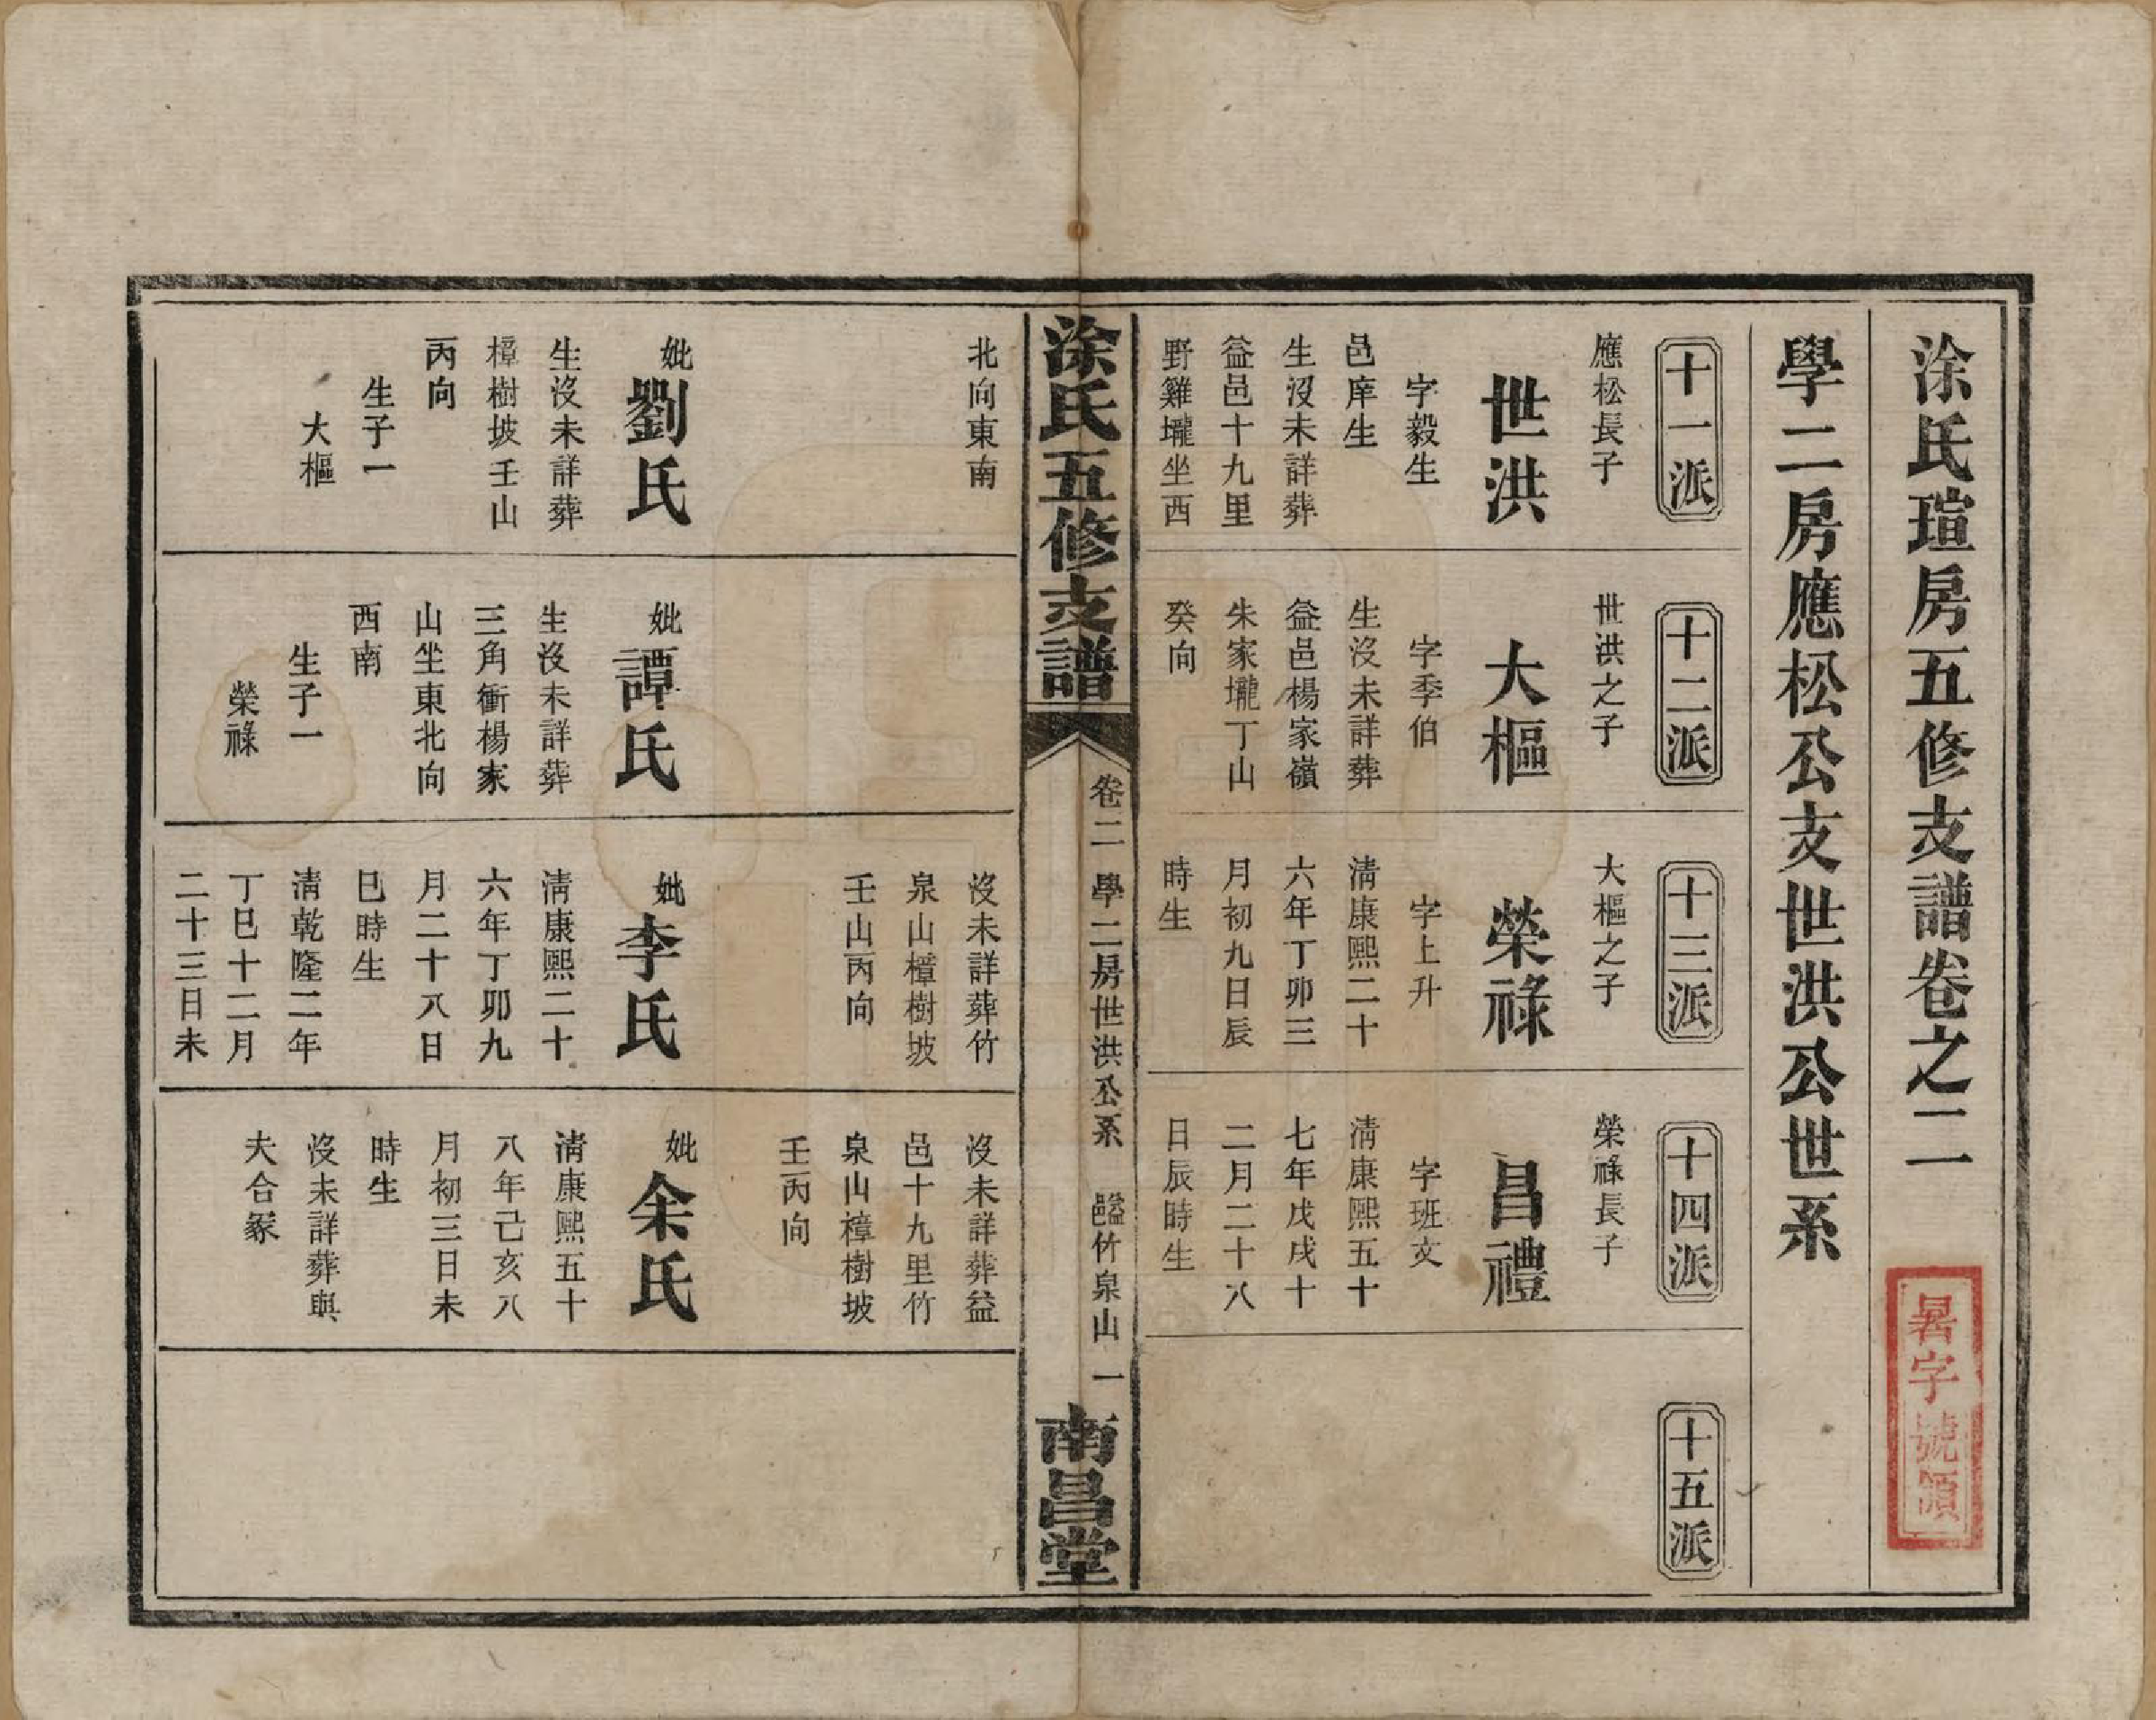 涂氏瑄房五修支譜卷之二
暑字號領
學二房應松公支世洪公世系
十一派
應松長子
世洪
字毅生
邑庠生
生沒未詳葬
益邑十九里
野雞壠坐西
北向東南
妣劉氏
生沒未詳葬
樟樹坡壬山
丙向
生子一
大樞
十二派
世洪之子
大樞
字季伯
生沒未詳葬
益邑楊家嶺
朱家壠丁山
癸向
妣譚氏
生沒未詳葬
三角衝楊家
山坐東北向
西南
生子一
榮祿
十三派
大樞之子
榮祿
字上升
淸康熙二十
六年丁卯三
月初九日辰
時生
沒未詳葬竹
泉山樟樹坡
壬山丙向
妣李氏
淸康熙二十
六年丁卯九
月二十八日
巳時生
淸乾隆二年
丁巳十二月
二十三日未
十四派
榮祿長子
昌禮
字班文
淸康熙五十
七年戊戌十
二月二十八
日辰時生
沒未詳葬益
邑十九里竹
泉山樟樹坡
壬丙向
妣余氏
淸康熙五十
八年己亥八
月初三日未
時生
沒未詳葬與
夫合冢
十五派
涂氏五修支譜
卷二 學二房世洪公系 益邑竹泉山 一
南昌堂